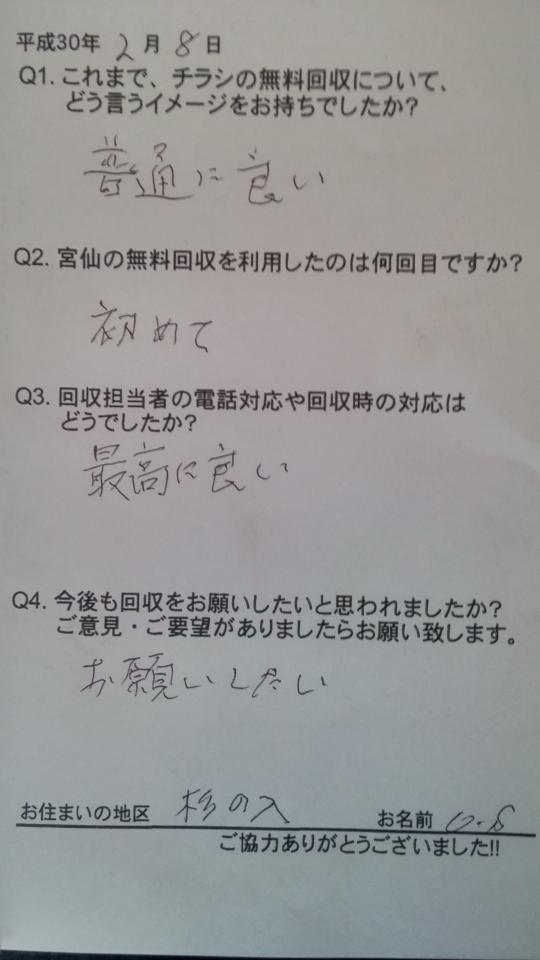 平成30年 2月 8日
Q1. これまで、チラシの無料回収について、
どう言うイメージをお持ちでしたか?
普通に良い
Q2. 宮仙の無料回収を利用したのは何回目ですか?
初めて
Q3. 回収担当者の電話対応や回収時の対応は
どうでしたか?
最高に良い
Q4. 今後も回収をお願いしたいと思われましたか?
ご意見・ご要望がありましたらお願い致します。
お願いしたい
お住まいの地区 杉の入 お名前
ご協力ありがとうございました!!